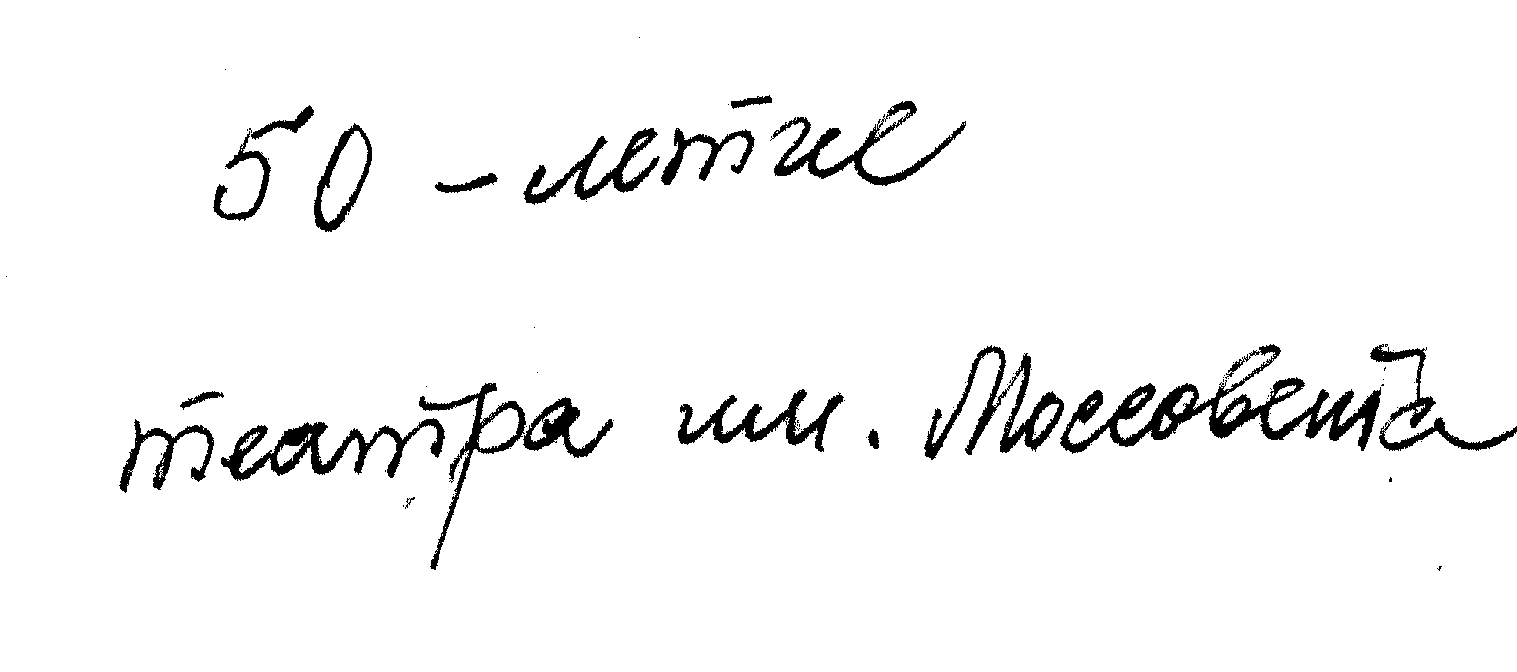 50 - летие
театра им. Моссовета